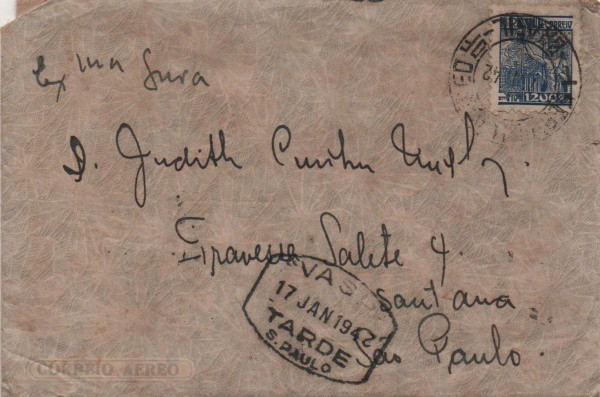 Ex ma Snra
D. Judith Cunha
Travessa Salete 4.
Sant'ana
São Paulo.
VASP
17 JAN 1942
TARDE
S. PAULO
CORREIO AEREO
1200